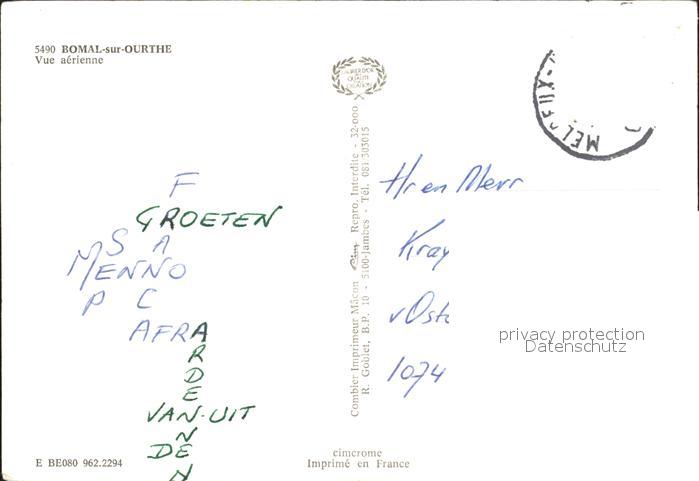 5490 BOMAL-sur-OURTHE
Vue aérienne
F
GROETEN
S A
MENNO
P C
AFRA
R
D
E
VAN-UIT
N
DEN
N
Hr en Mevr
Kray
1074
privacy protection
Datenschutz
Combier Imprimeur Mâcon Repro. Interdite - 32-000
R. Goblet, B.P. 10 - 5100-Jambes - Tél. 081/303015
E BE080 962.2294
cimcrome
Imprimé en France